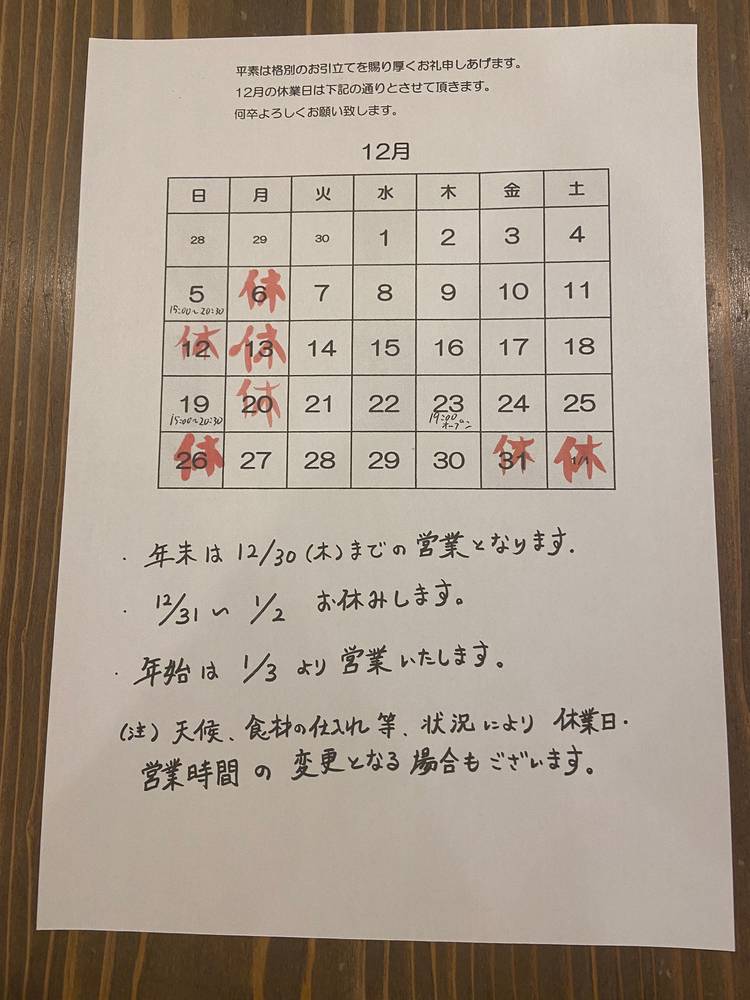 平素は格別のお引立てを賜り厚くお礼申しあげます。
12月の休業日は下記の通りとさせて頂きます。
何卒よろしくお願い致します。
12月
日 月 火 水 木 金 土
28 29 30 1 2 3 4
5 6 7 8 9 10 11
15:00~20:30 休
12 13 14 15 16 17 18
休 休
19 20 21 22 23 24 25
15:00~20:30 休 19:00 オープン
26 27 28 29 30 31 1/1
休 休 休
・年末は12/30(木)までの営業となります.
・12/31~1/2 お休みします。
・年始は1/3より営業いたします。
(注)天候、食材の仕入れ等、状況により休業日・
営業時間の変更となる場合もございます。